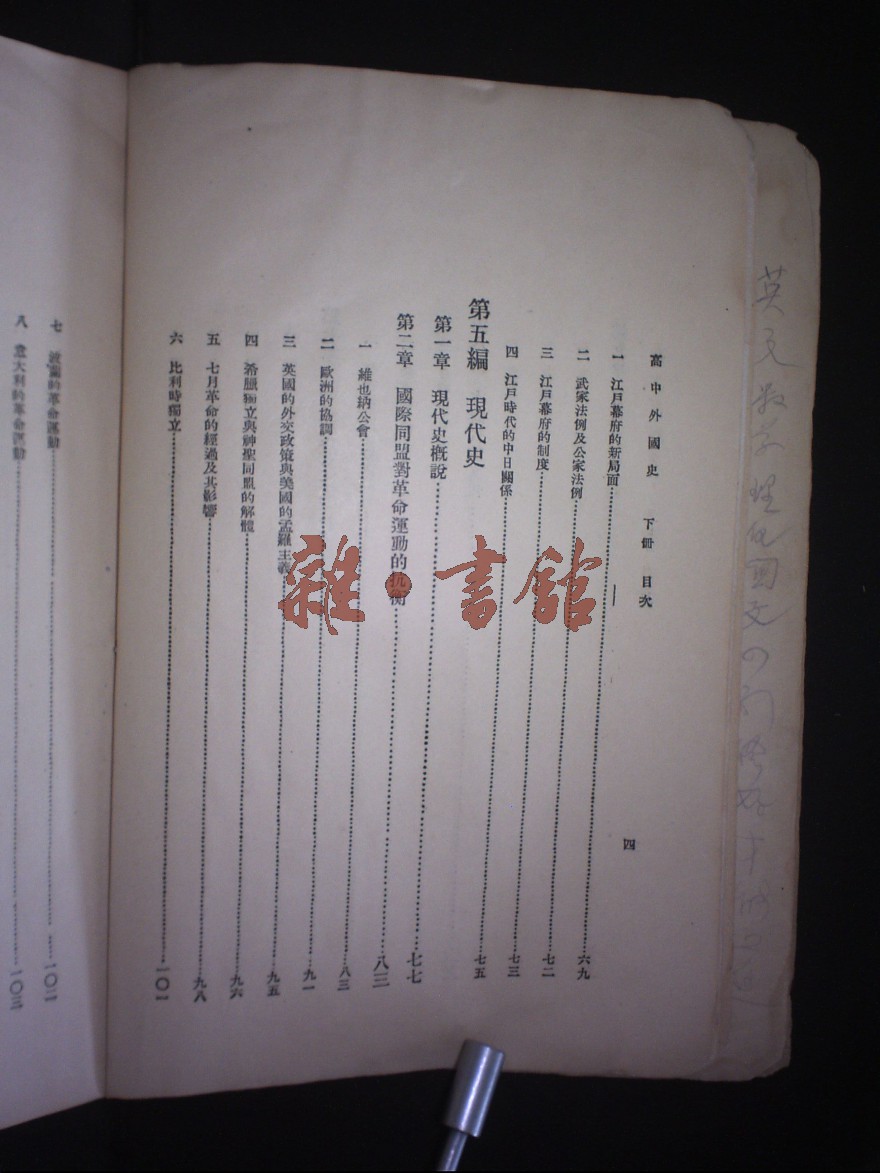 高中外國史　下冊　目次
四
一　江戶幕府的新局面……六九
二　武家法例及公家法例……七二
三　江戶幕府的制度……七三
四　江戶時代的中日關係……七五
第五編　現代史
第一章　現代史概說……七七
第二章　國際同盟對革命運動的抗衡……八三
一　維也納公會……八三
二　歐洲的協調……九一
三　英國的外交政策與美國的孟羅主義……九五
四　希臘獨立與神聖同盟的解體……九六
五　七月革命的經過及其影響……九八
六　比利時獨立……一〇一
七　波蘭的革命運動……一〇二
八　意大利的革命運動……一〇三
雜·書館
英文
國文